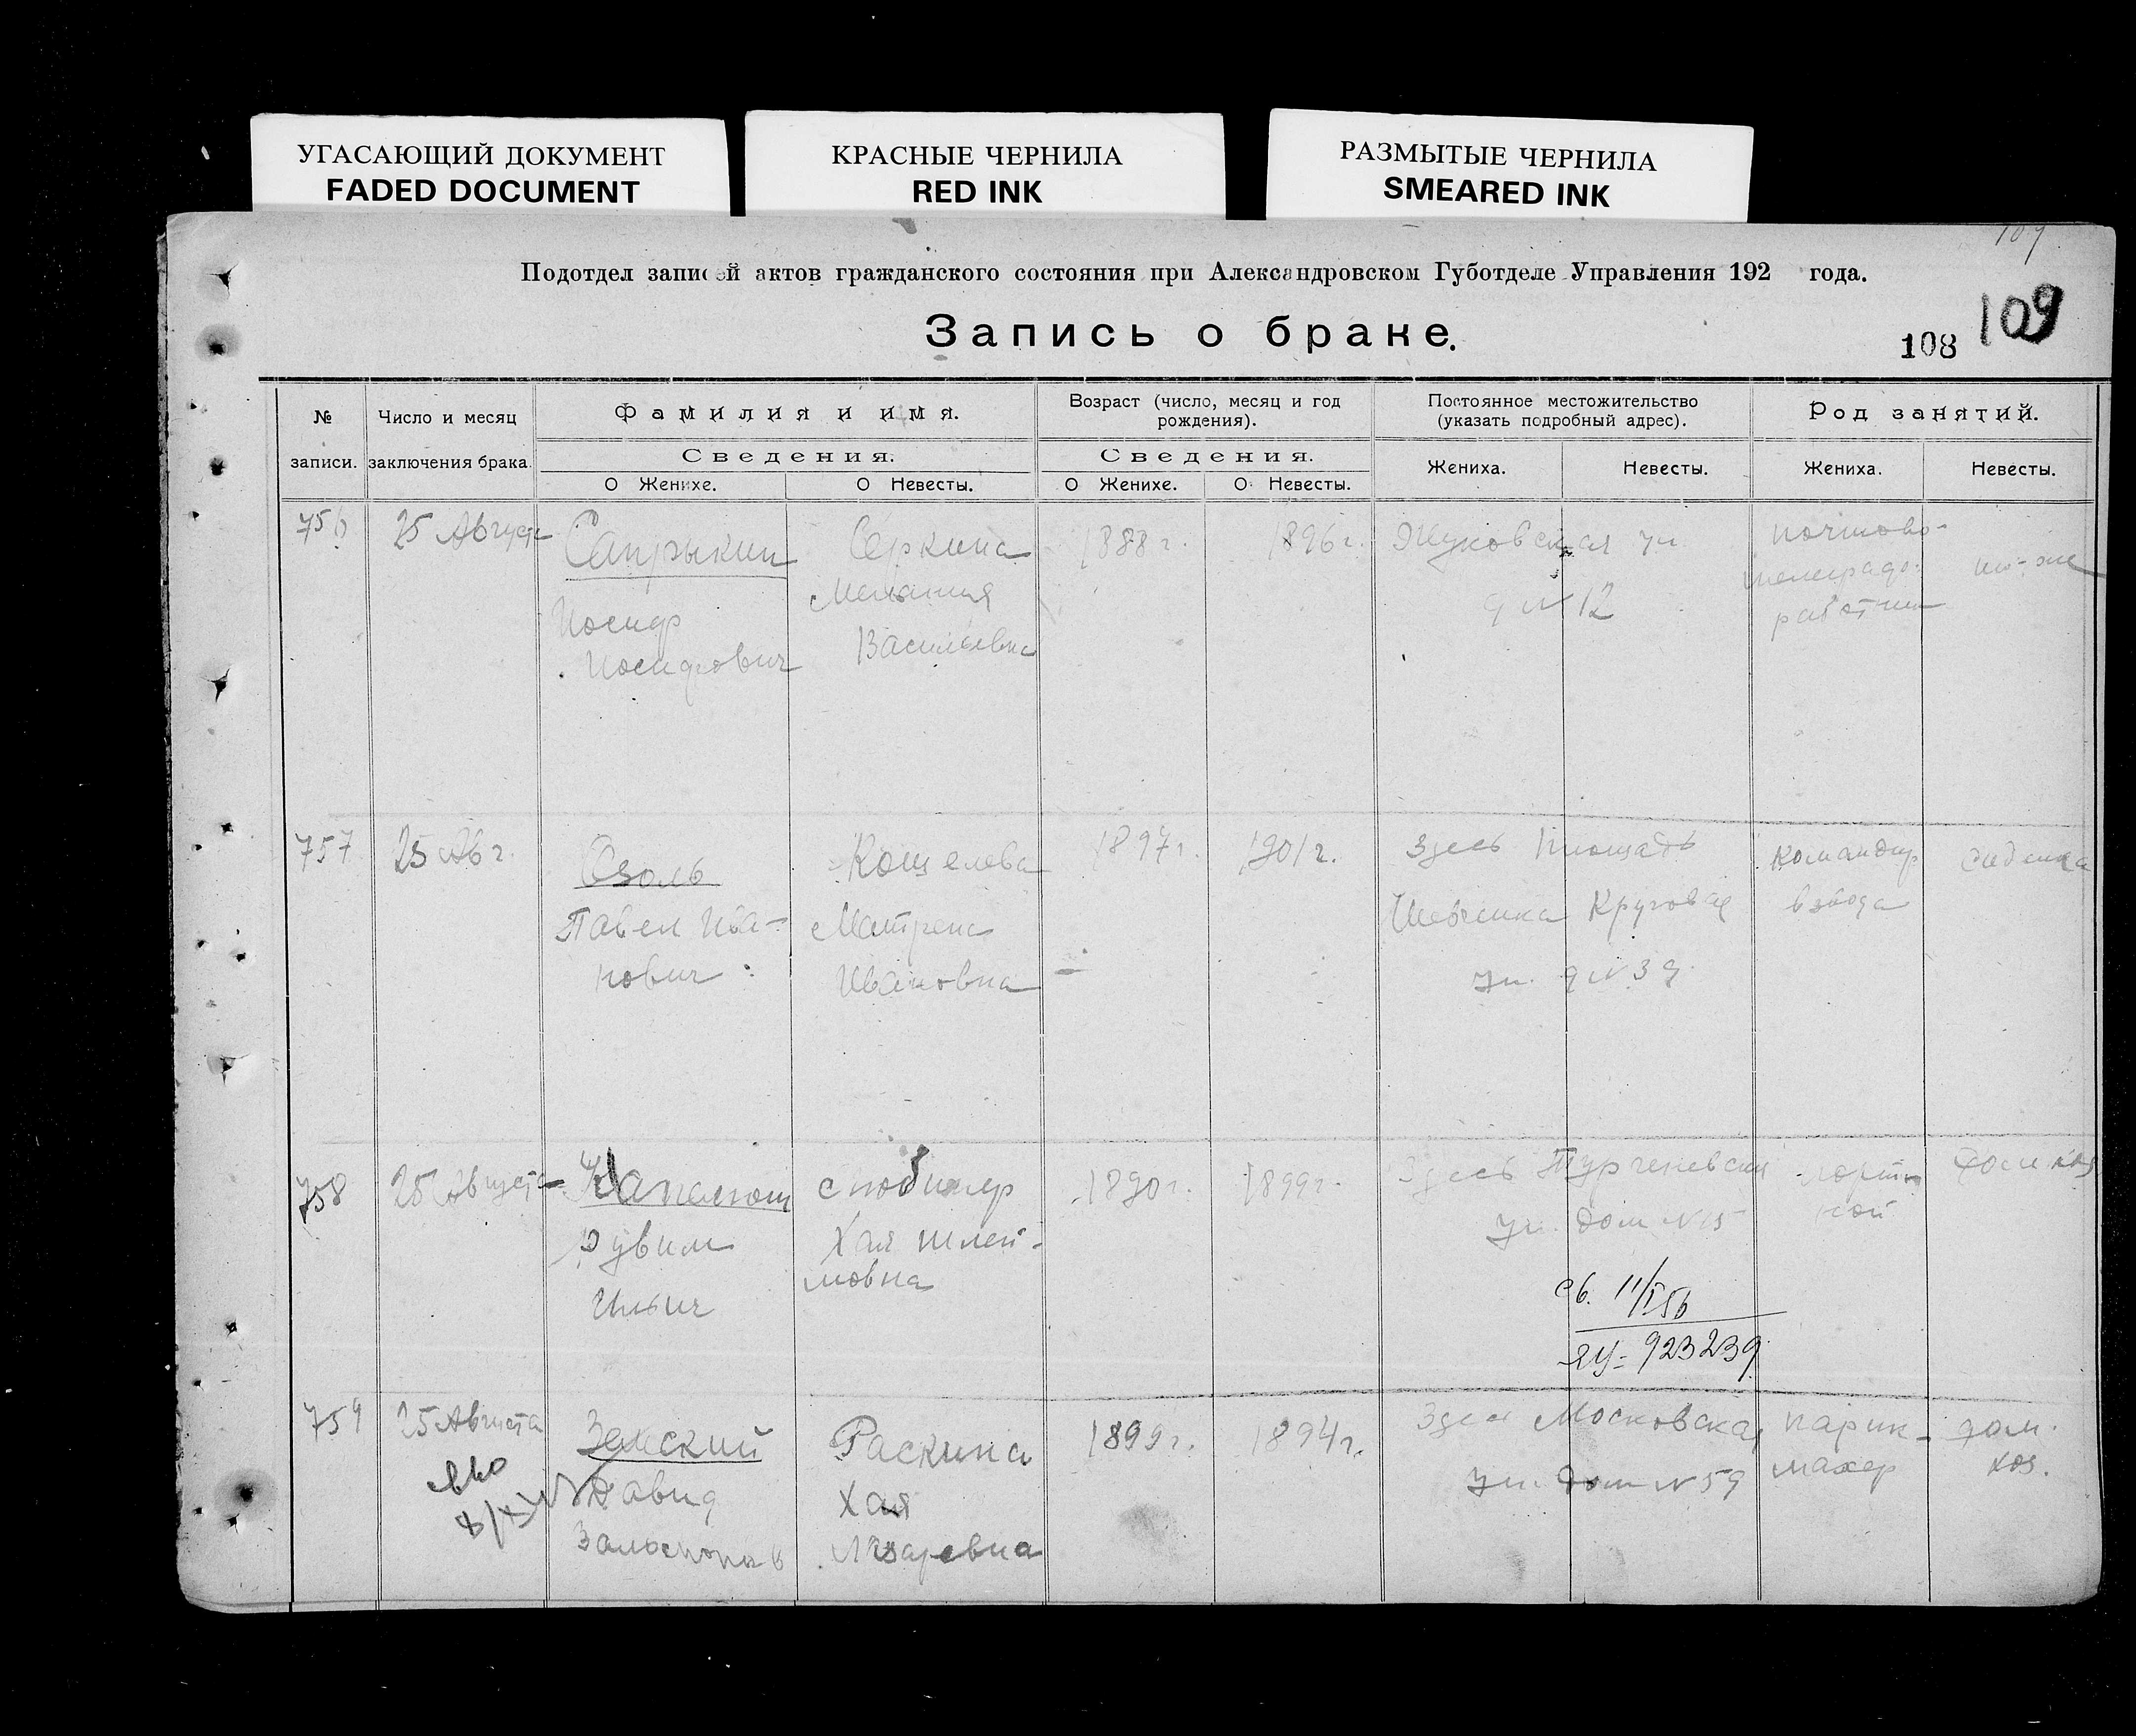 УГАСАЮЩИЙ ДОКУМЕНТ
FADED DOCUMENT
КРАСНЫЕ ЧЕРНИЛА
RED INK
РАЗМЫТЫЕ ЧЕРНИЛА
SMEARED INK
109
Подотдел записей актов гражданского состояния при Александровском Губотделе Управления 192 года.
Запись о браке.
108 109
№ записи.
Число и месяц заключения брака.
Фамилия и имя.
Сведения.
О Женихе.
О Невесты.
Возраст (число, месяц и год рождения).
Сведения.
О Женихе.
О Невесты.
Постоянное местожительство (указать подробный адрес).
Жениха.
Невесты.
Род занятий.
Жениха.
Невесты.
756
25 Августа
Сапрыкин
Иосиф
Иосифович
Серкина
Мелания
Васильевна
1888 г.
1896 г.
Жуковская ул
д № 12
почтово-
телеграф.
работник
757
25 Авг.
Озоль
Павел Ива-
нович
Кошелева
Матрена
Ивановна
1897 г.
1901 г.
Здесь Площадь
Шевченка Круговая
ул. д № 39
Командир
взвода
758
25 Августа
Рувим
Ильич
Хая Шлей-
мовна
1890 г.
1899 г.
Здесь Тургеневская
ул. дом № 15
св. 11/I 56
ЯУ- 923239
порт-
ной
дом. хоз
759
25 Августа
Земский
Давид
Раскина
Хая
Лазаревна
1899 г.
1894 г.
Здесь Московская
ул. дом № 59
парик-
махер
дом.
хоз.